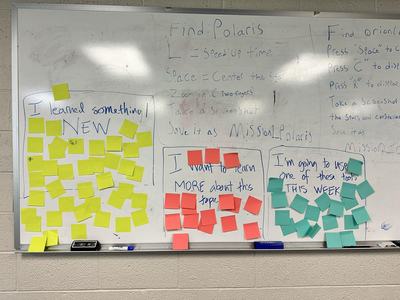 Find Polaris
L = Speed up time
Space = Center the
Zoom in (2 fingers)
Take a Screenshot
Save it as Mission1_Polaris
Find Orion
Press "Space" to C
Press "C" to disp
Press to disp
Take a Screenshot
the Stars and
Save it as
Mission
I learned something
NEW
I want to learn
MORE about this
I'm going to use
one of these
THIS WEEK